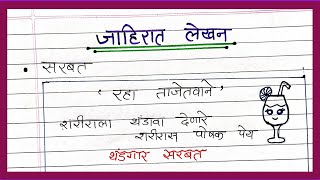 जाहिरात लेखन
• सरबत
' रहा ताजेतवाने '
शरीराला थंडावा देणारे
शरीरास पोषक पेय
थंडगार सरबत